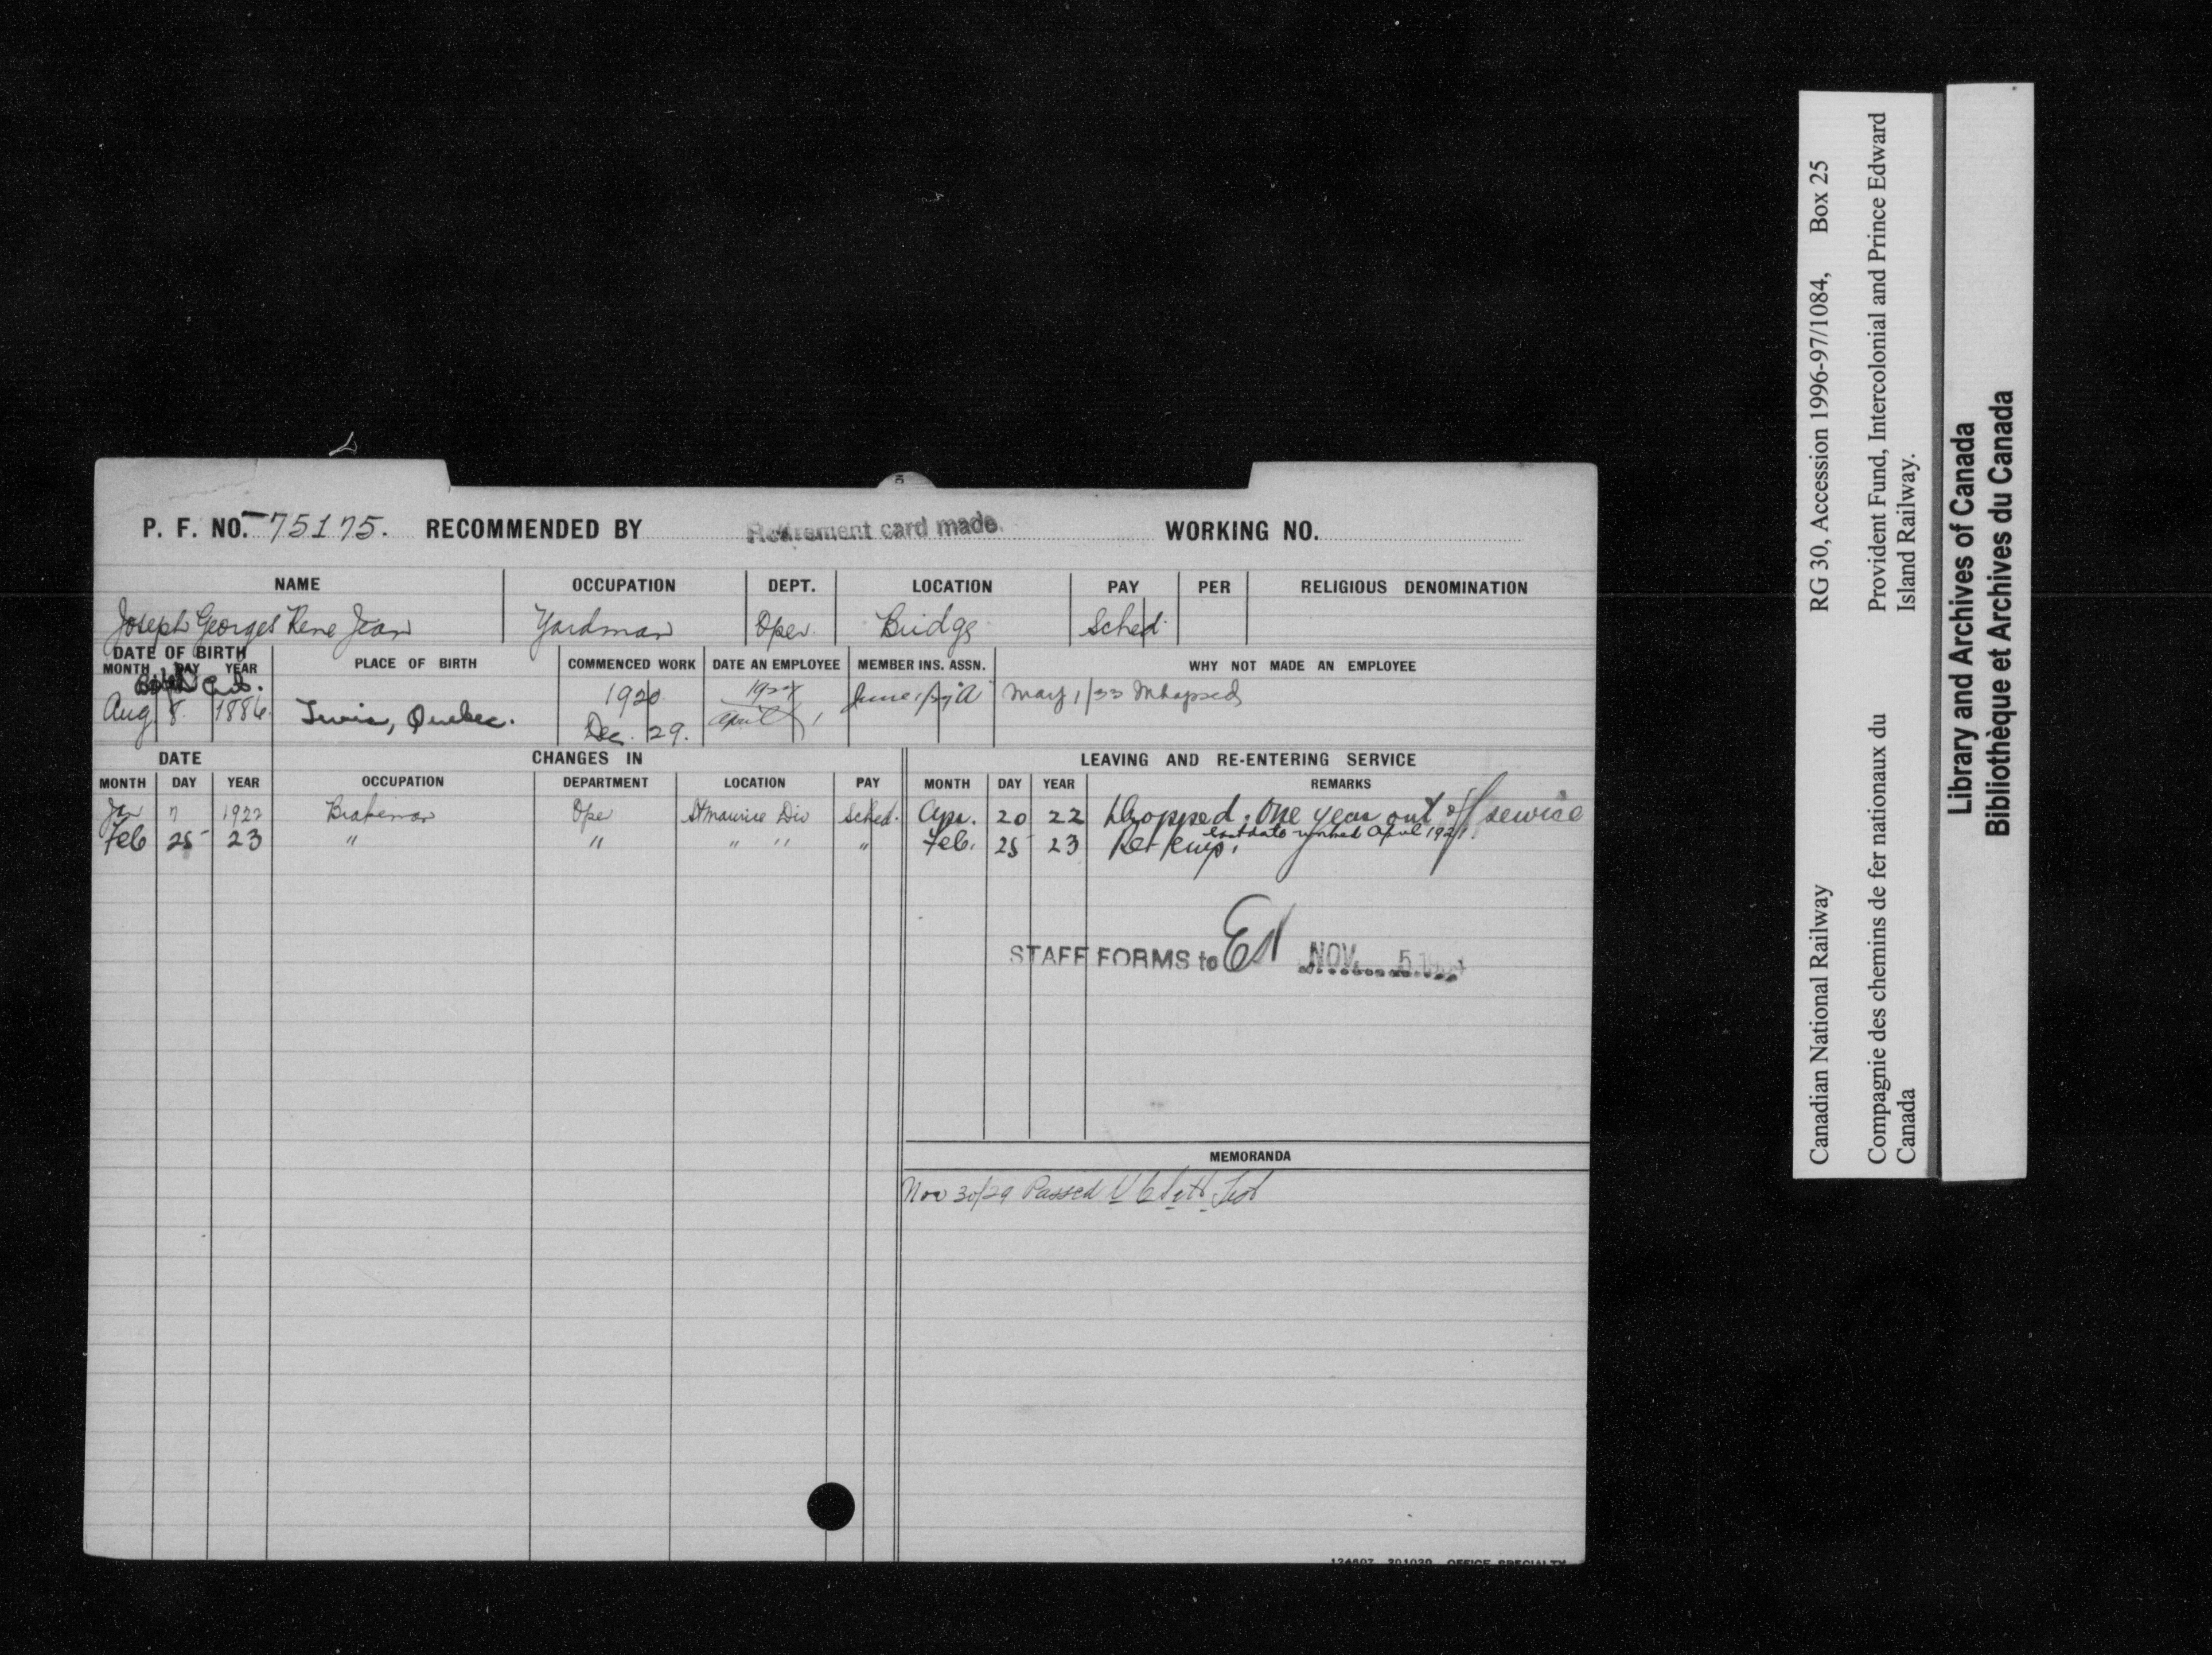 P. F. NO. 75175. RECOMMENDED BY Retirement card made WORKING NO.
NAME OCCUPATION DEPT. LOCATION PAY PER RELIGIOUS DENOMINATION
Joseph Georges Rene Jean Yardman Oper. Bridge Sched.
DATE OF BIRTH
MONTH DAY YEAR PLACE OF BIRTH COMMENCED WORK DATE AN EMPLOYEE MEMBER INS. ASSN. WHY NOT MADE AN EMPLOYEE
Aug. 8. 1886. Quebec. 1920 Dec. 29. April 1 June 1 "A" May 1/33
DATE CHANGES IN LEAVING AND RE-ENTERING SERVICE
MONTH DAY YEAR OCCUPATION DEPARTMENT LOCATION PAY MONTH DAY YEAR REMARKS
Jan 7 1922 Brakeman Ope St Maurice Div Sched. Apr. 20 22 Dropped. One year out of service
last date worked April 1921.
Feb 25 23 " " " " " Feb. 25 23 Re-Emp.
STAFF FORMS to NOV. 5
MEMORANDA
Nov 30/29 Passed Test
124607 201020 OFFICE SPECIALTY
Canadian National Railway RG 30, Accession 1996-97/1084, Box 25
Compagnie des chemins de fer nationaux du Canada
Provident Fund, Intercolonial and Prince Edward Island Railway.
Library and Archives of Canada
Bibliothèque et Archives du Canada